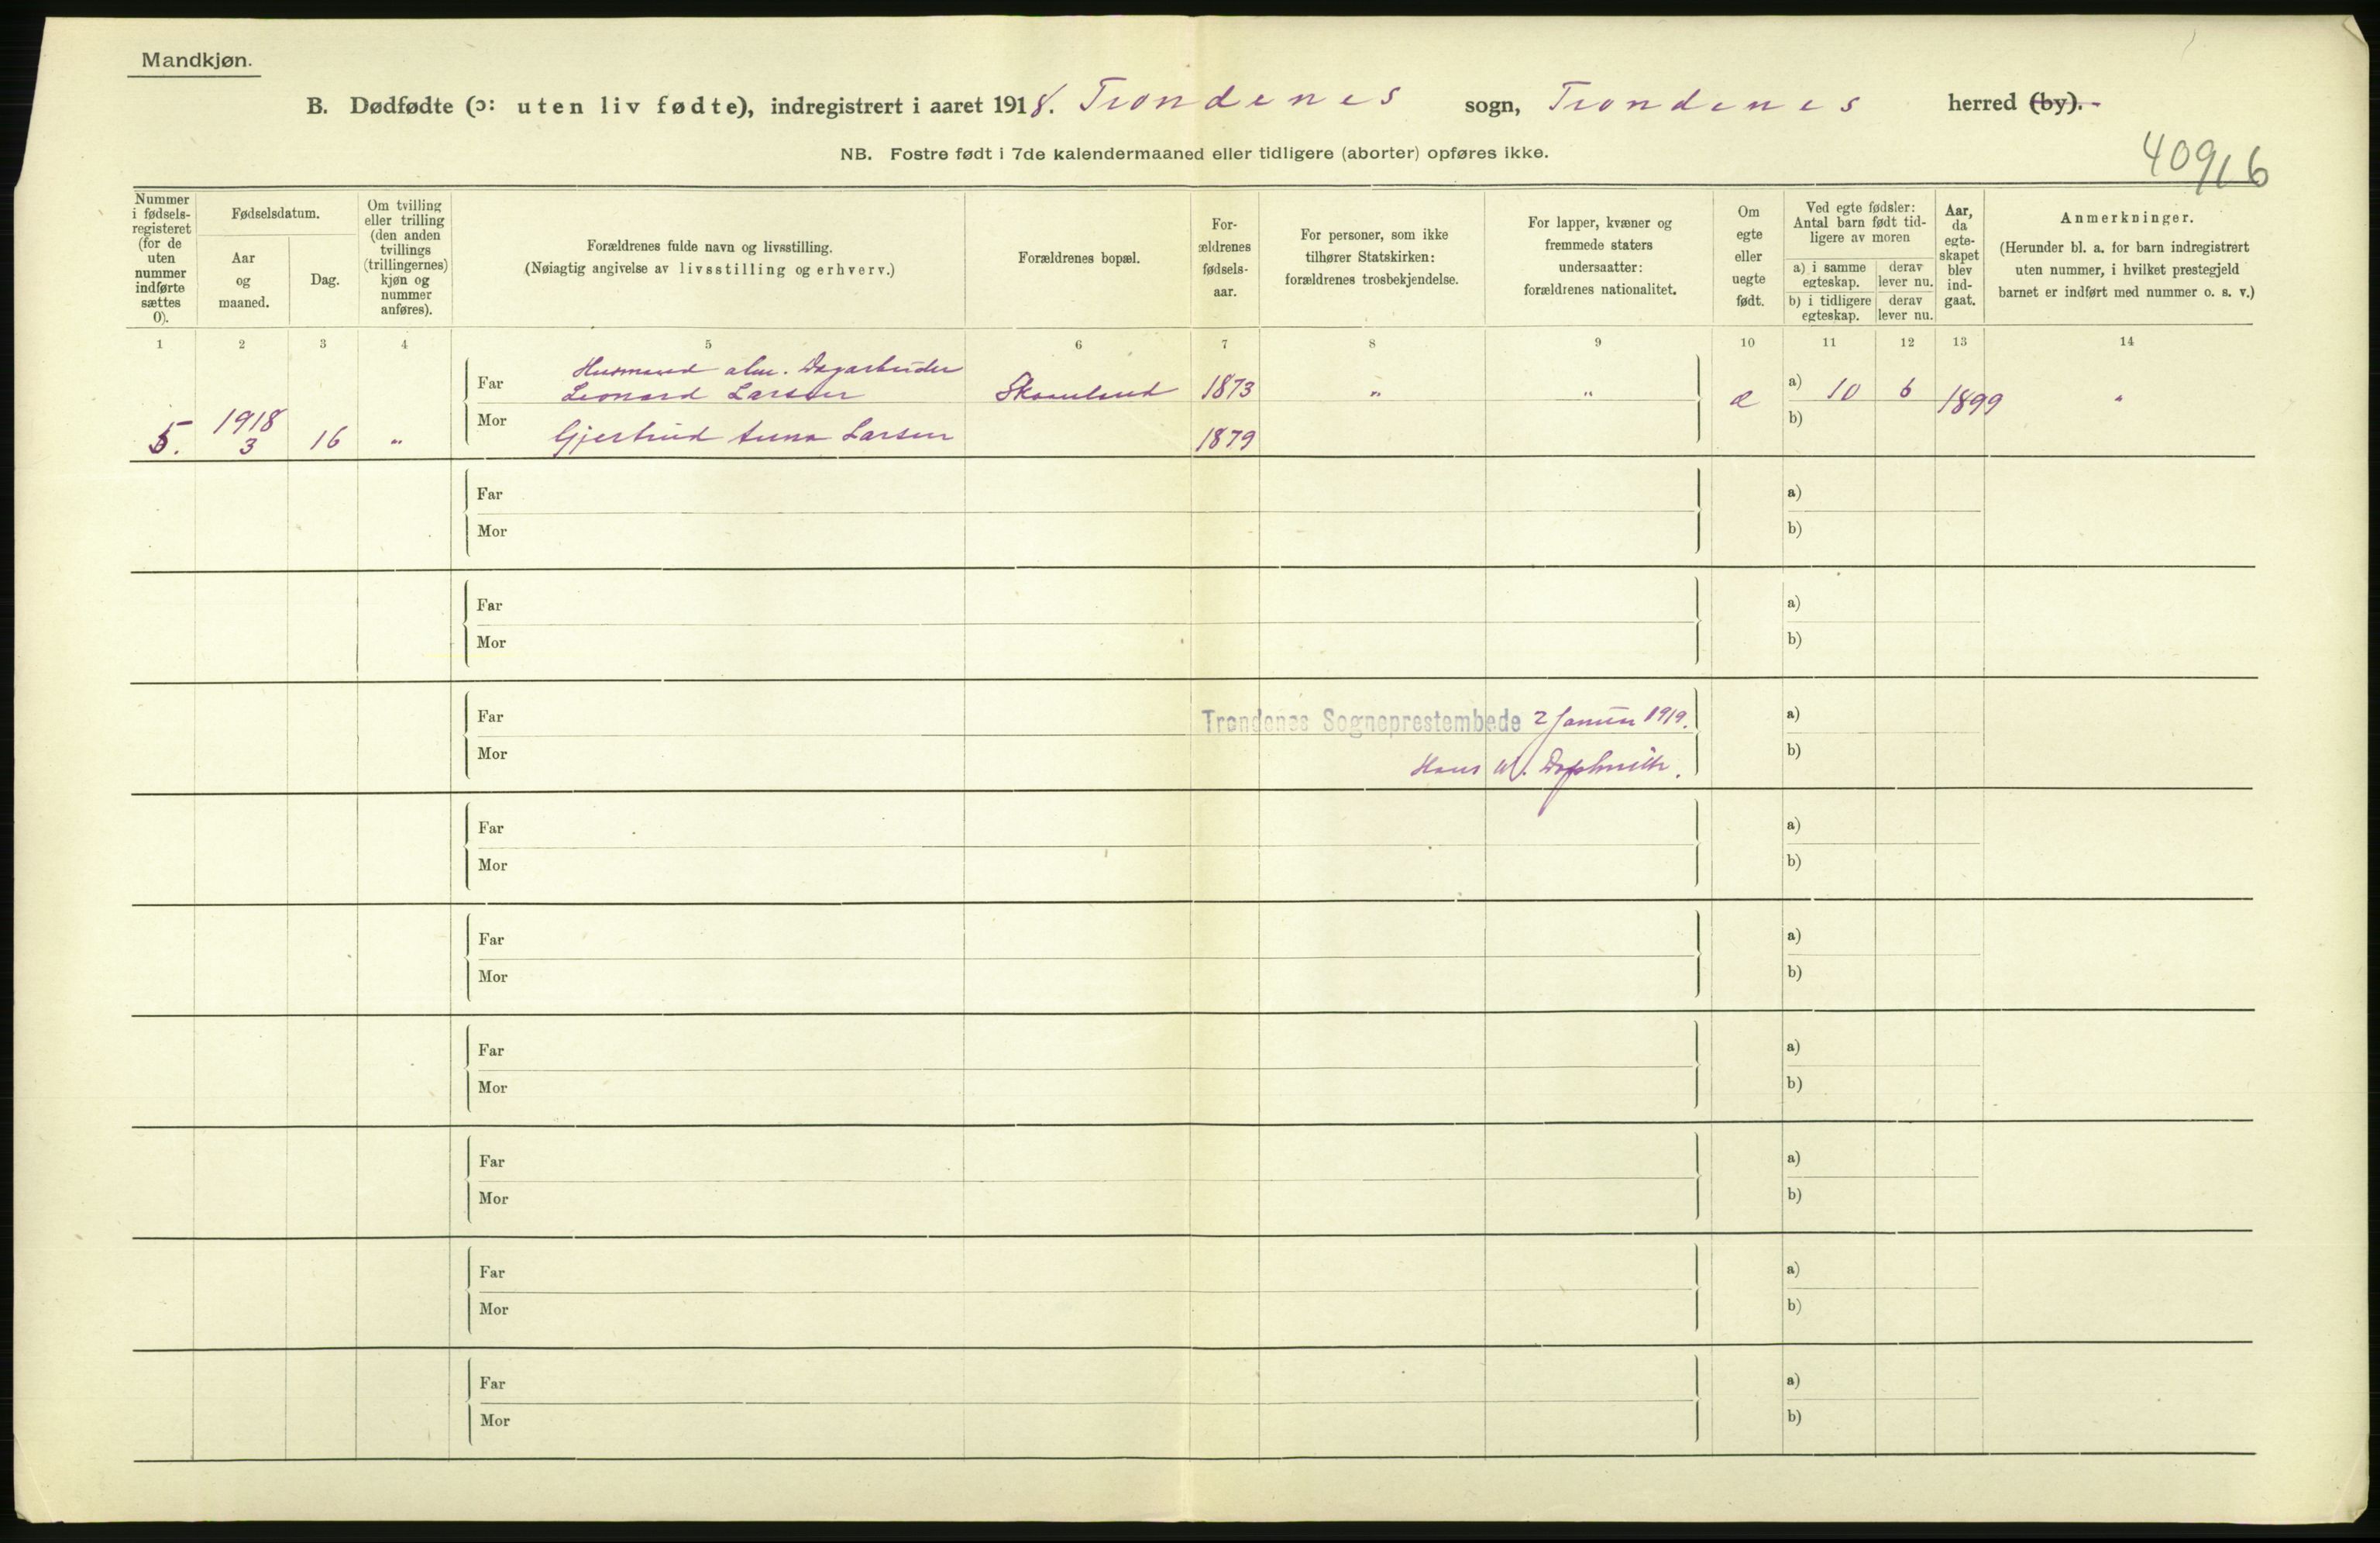 Mandkjøn.
B. Dødfødte (ɔ: uten liv fødte), indregistrert i aaret 1918. Trondenes sogn, Trondenes herred (by).
NB. Fostre født i 7de kalendermaaned eller tidligere (aborter) opføres ikke.
409/16
Nummer i fødsels-registeret (for de uten nummer indførte sættes 0).
Fødselsdatum.
Aar og maaned.
Dag.
Om tvilling eller trilling (den anden tvillings (trillingernes) kjøn og nummer anføres).
Forældrenes fulde navn og livsstilling.
(Nøiagtig angivelse av livsstilling og erhverv.)
Forældrenes bopæl.
For-ældrenes fødsels-aar.
For personer, som ikke tilhører Statskirken: forældrenes trosbekjendelse.
For lapper, kvæner og fremmede staters undersaatter: forældrenes nationalitet.
Om egte eller uegte født.
Ved egte fødsler: Antal barn født tid-ligere av moren
a) i samme egteskap.
derav lever nu.
b) i tidligere egteskap.
derav lever nu.
Aar, da egte-skapet blev ind-gaat.
Anmerkninger.
(Herunder bl. a. for barn indregistrert uten nummer, i hvilket prestegjeld barnet er indført med nummer o. s. v.)
1 2 3 4 5 6 7 8 9 10 11 12 13 14
Husmand alm. Dagarbeider
Far Leonard Larsen 1873 " " e a) 10 6 1899 "
5. 1918 3 16 " Mor Gjertrud Anna Larsen 1879 b)
Far a)
Mor b)
Far a)
Mor b)
Far Trondenes Sogneprestembede 2 Januar 1919. a)
Mor Hans b)
Far a)
Mor b)
Far a)
Mor b)
Far a)
Mor b)
Far a)
Mor b)
Far a)
Mor b)
Far a)
Mor b)